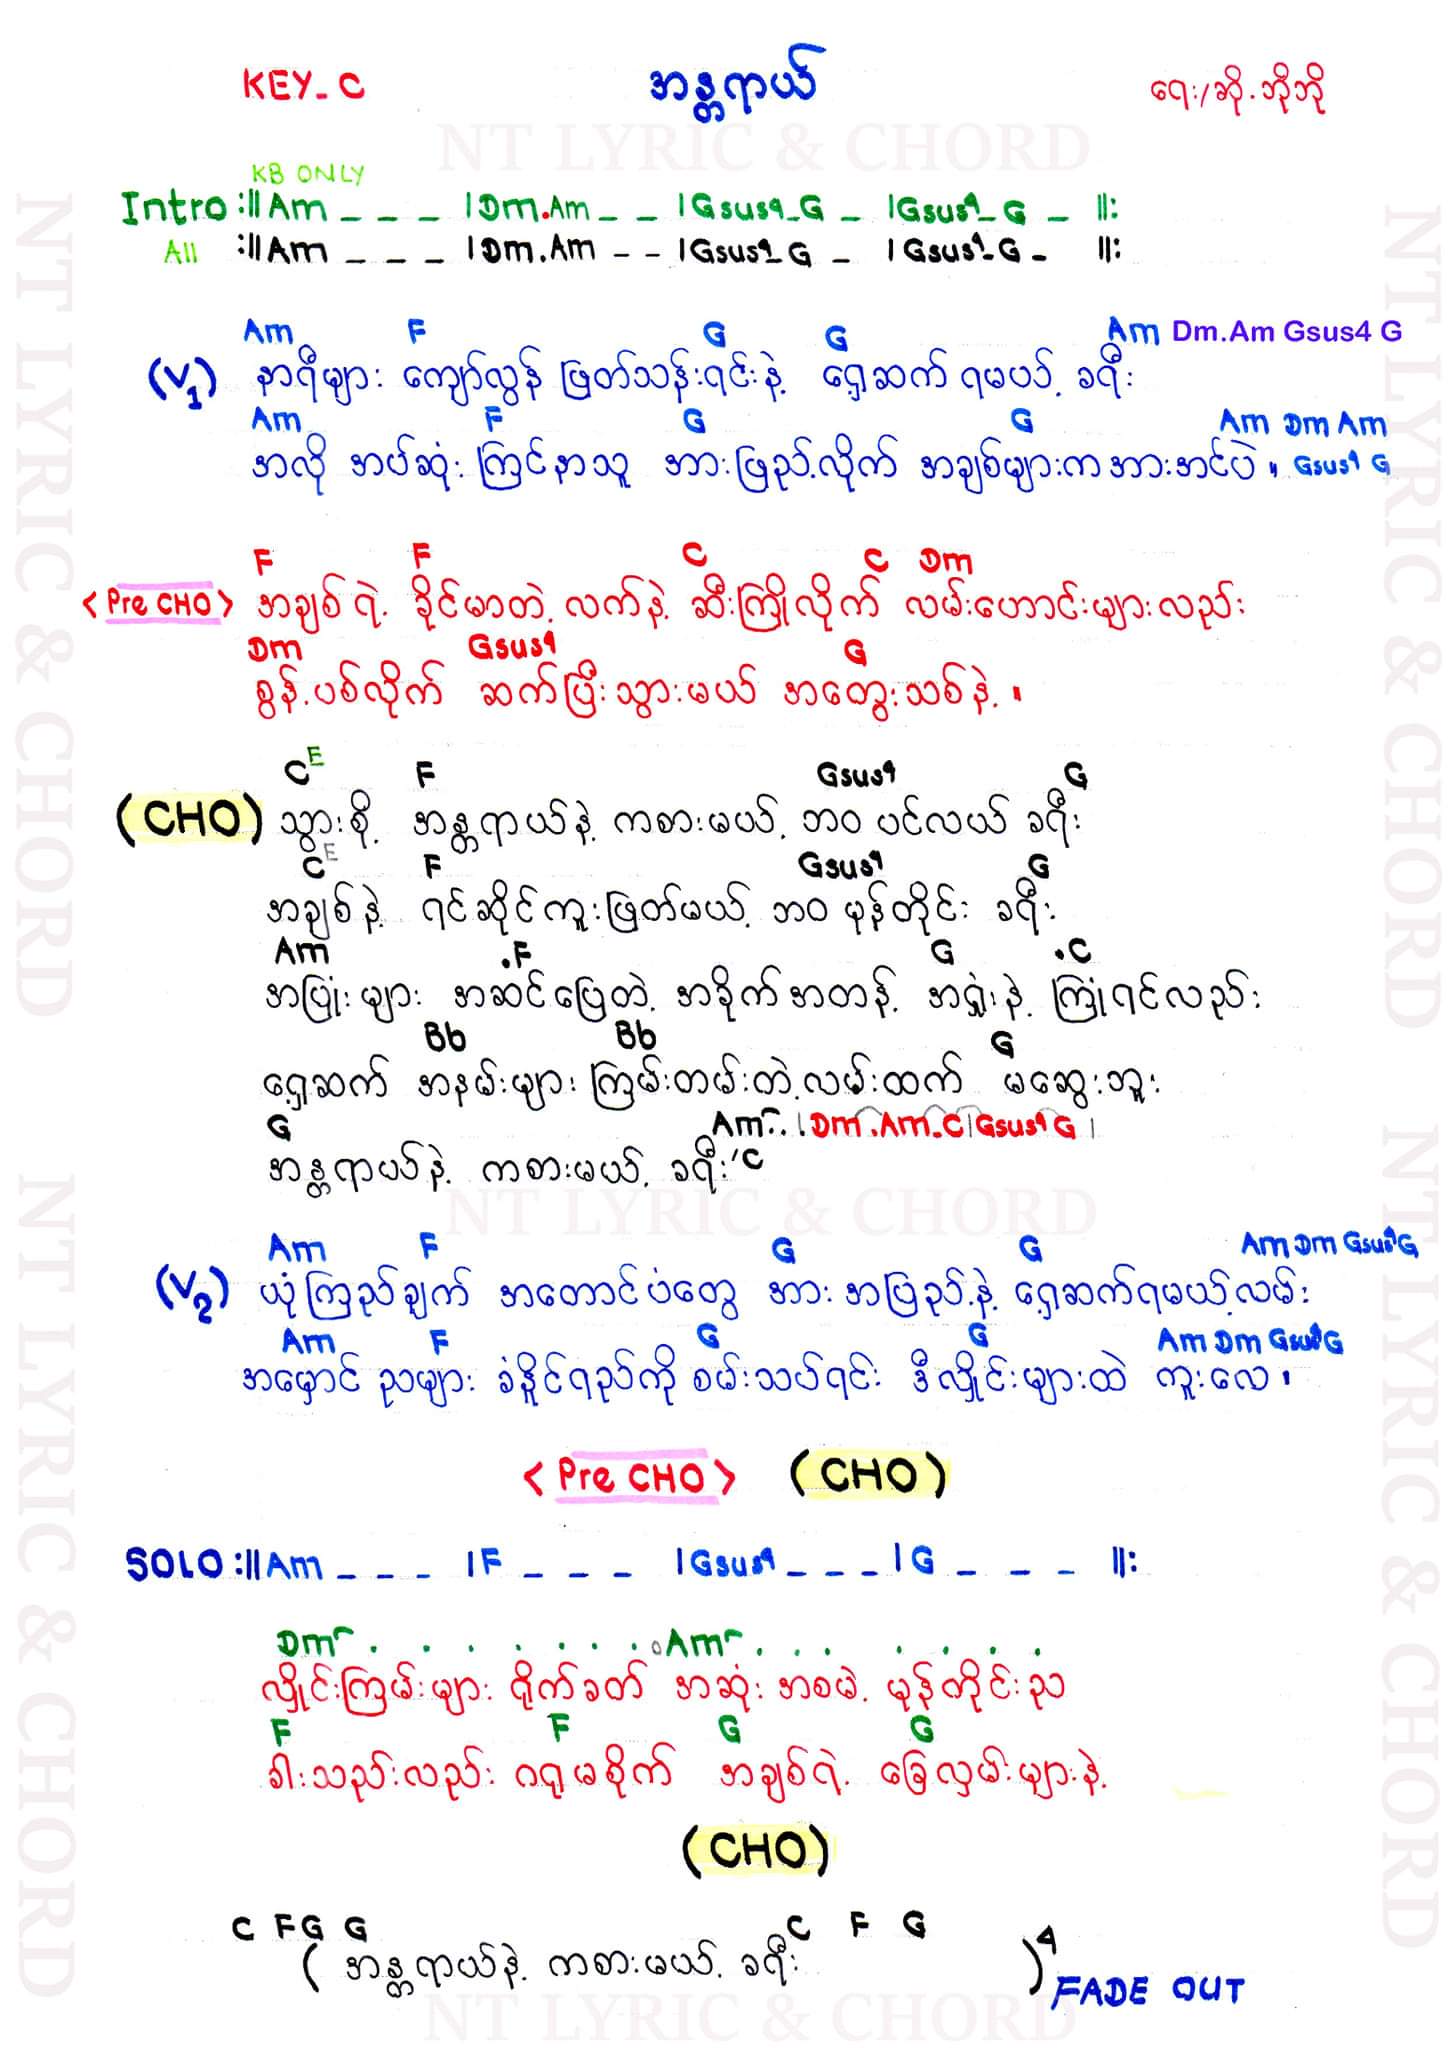 KEY_C အန္တရာယ် ရေး/ဆို.ဘိုဘို
NT LYRIC & CHORD
KB ONLY
Intro :||Am _ _ _ |Dm.Am _ _ |Gsus4_G _ |Gsus4_G _ ||:
All :||Am _ _ _ |Dm.Am _ _ |Gsus4_G _ |Gsus4_G _ ||:
Am F G G Am Dm.Am Gsus4 G
(V1) နာရီများ ကျော်လွန် ဖြတ်သန်းရင်းနဲ့ ရှေ့ဆက် ရမယ့် ခရီး
Am F G G Am Dm Am
အလို အပ်ဆုံး ကြင်နာသူ အားဖြည့်လိုက် အချစ်များကအားအင်ပဲ ။ Gsus4 G
F F C C Dm
<Pre CHO> အချစ် ရဲ့ ခိုင်မာတဲ့ လက်နဲ့ ဆီးကြိုလိုက် လမ်းဟောင်းများလည်း
Dm Gsus4 G
စွန့်ပစ်လိုက် ဆက်ပြီးသွားမယ် အတွေးသစ်နဲ့ ။
C E F Gsus4 G
(CHO) သွားစို့ အန္တရာယ်နဲ့ ကစားမယ့် ဘဝ ပင်လယ် ခရီး
C E F Gsus4 G
အချစ်နဲ့ ရင်ဆိုင်ကူးဖြတ်မယ့် ဘဝ မုန်တိုင်း ခရီး
Am .F G .C
အပြုံးများ အဆင်ပြေတဲ့ အခိုက်အတန့် အရှုံးနဲ့ ကြုံရင်လည်း
Bb Bb G
ရှေ့ဆက် အနမ်းများ ကြမ်းတမ်းတဲ့လမ်းထက် မဆွေးဘူး
G Am . . |Dm.Am_C|Gsus4 G|
အန္တရာယ်နဲ့ ကစားမယ့် ခရီး ' C
NT LYRIC & CHORD
Am F G G Am Dm Gsus4 G
(V2) ယုံကြည်ချက် အတောင်ပံတွေ အား အပြည့်နဲ့ ရှေ့ဆက်ရမယ့်လမ်း
Am F G G Am Dm Gsus4 G
အမှောင် ညများ ခံနိုင်ရည်ကို စမ်းသပ်ရင်း ဒီလှိုင်းများထဲ ကူးလေ ။
<Pre CHO> (CHO)
SOLO :||Am _ _ _ |F _ _ _ |Gsus4 _ _ _ |G _ _ _ ||:
Dm . . . . . . . Am . . . . . . .
လှိုင်းကြမ်းများ ရိုက်ခတ် အဆုံး အစမဲ့ မုန်တိုင်းည
F F G G
ခါးသည်းလည်း ဂရုမစိုက် အချစ်ရဲ့ ခြေလှမ်းများနဲ့
(CHO)
C F G G C F G
( အန္တရာယ်နဲ့ ကစားမယ့် ခရီး )4
FADE OUT
NT LYRIC & CHORD
NT LYRIC & CHORD
NT LYRIC & CHORD
NT LYRIC & CHORD
NT LYRIC & CHORD